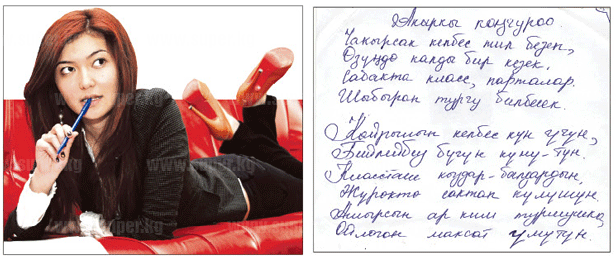 www.super.kg
Акыркы коңгуроо.
Чакырсак келбес тил безеп,
Өзүндө калды бир кезек.
Сабакта класс, парталар.
Шыбырап тургу билбесек.
келбес күн үчүн,
бүгүн күнү-түн.
Классташ кыздар-балдардын,
Жүрөктө сактап күлүшүн.
ар ким турмушка,
Ойлогон максат үмүтүн.